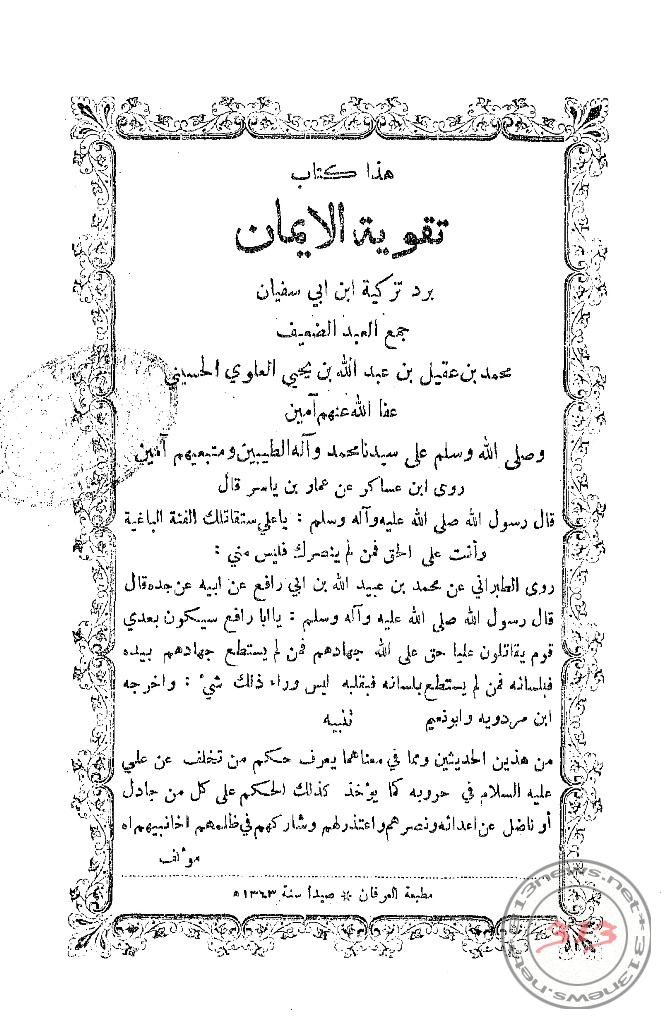 هذا كتاب
تقوية الايمان
برد تزكية ابن ابي سفيان
جمع العبد الضعيف
محمد بن عقيل بن عبد الله بن يحيى العلوي الحسيني
عفا الله عنهم آمين
وصلى الله وسلم على سيدنا محمد وآله الطيبين ومتبعيهم آمين
روى ابن عساكر عن عمار بن ياسر قال
قال رسول الله صلى الله عليه وآله وسلم : ياعلي ستقاتلك الفئة الباغية
وأنت على الحق فمن لم ينصرك فليس مني :
روى الطبراني عن محمد بن عبيد الله بن ابي رافع عن ابيه عن جده قال
قال رسول الله صلى الله عليه وآله وسلم : يا ابا رافع سيكون بعدي
قوم يقاتلون عليا حق على الله جهادهم فمن لم يستطع جهادهم بيده
فبلسانه فمن لم يستطع بلسانه فبقلبه ليس وراء ذلك شيء : واخرجه
ابن مردويه وابو نعيم تنبيه
من هذين الحديثين ومما في معناهما يعرف حكم من تخلف عن علي
عليه السلام في حروبه كما يؤخذ كذلك الحكم على كل من جادل
أو ناضل عن اعدائه ونصرهم واعتذر لهم وشاركهم في ظلمهم اخا نبيهم اه
مؤلف
مطبعة العرفان * صيدا سنة ١٣٦٣ ه
313news.net
313
313news.net